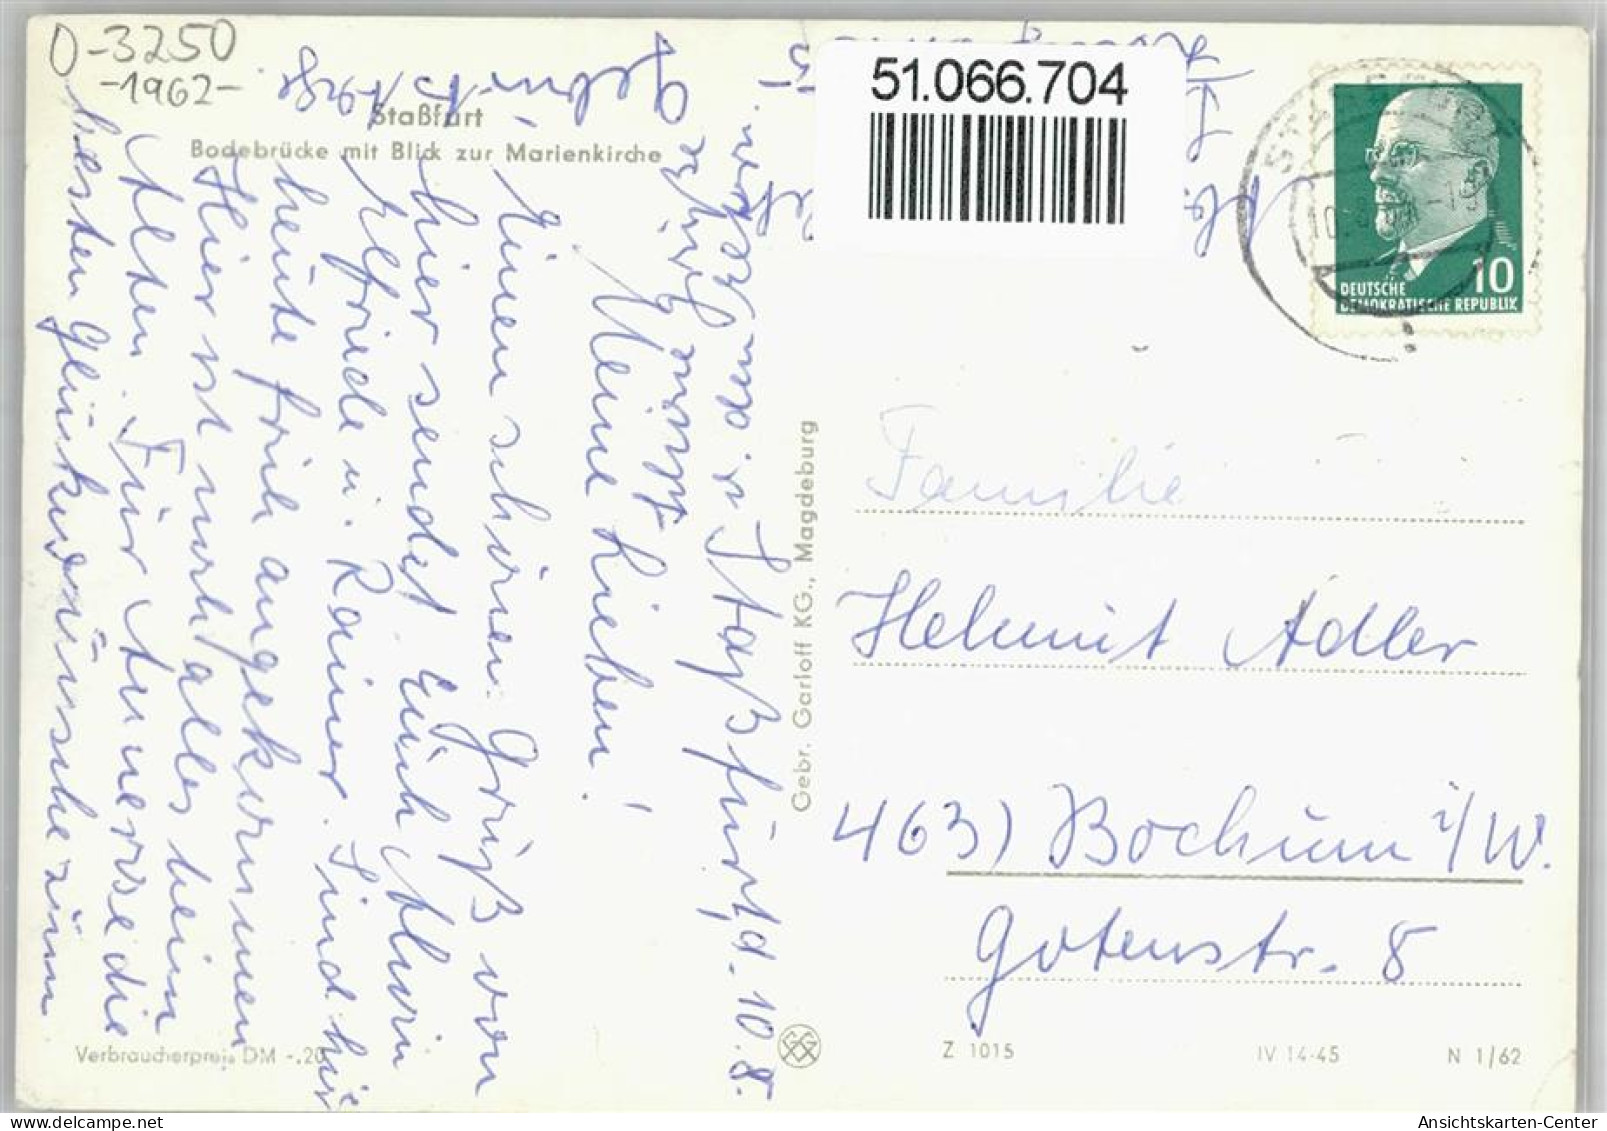 0-3250
-1962-
Staßfurt
Bodebrücke mit Blick zur Marienkirche
51.066.704
10
DEUTSCHE
DEMOKRATISCHE REPUBLIK
Staßfurt, d. 10.8.
Meine Lieben!
Einen schönen Gruß von
hier sendet Euch Alwin
Elfriede u. Rainer. Sind
heute früh angekommen
Hier ist noch alles beim
Alten. Für Annerose die
besten Glückwünsche zum
Familie
Helmut Adler
463) Bochum i/W.
Gotenstr. 8
Gebr. Garloff KG., Magdeburg
Verbraucherpreis DM -.20
Z 1015
IV 14-45
N 1/62
Ansichtskarten-Center